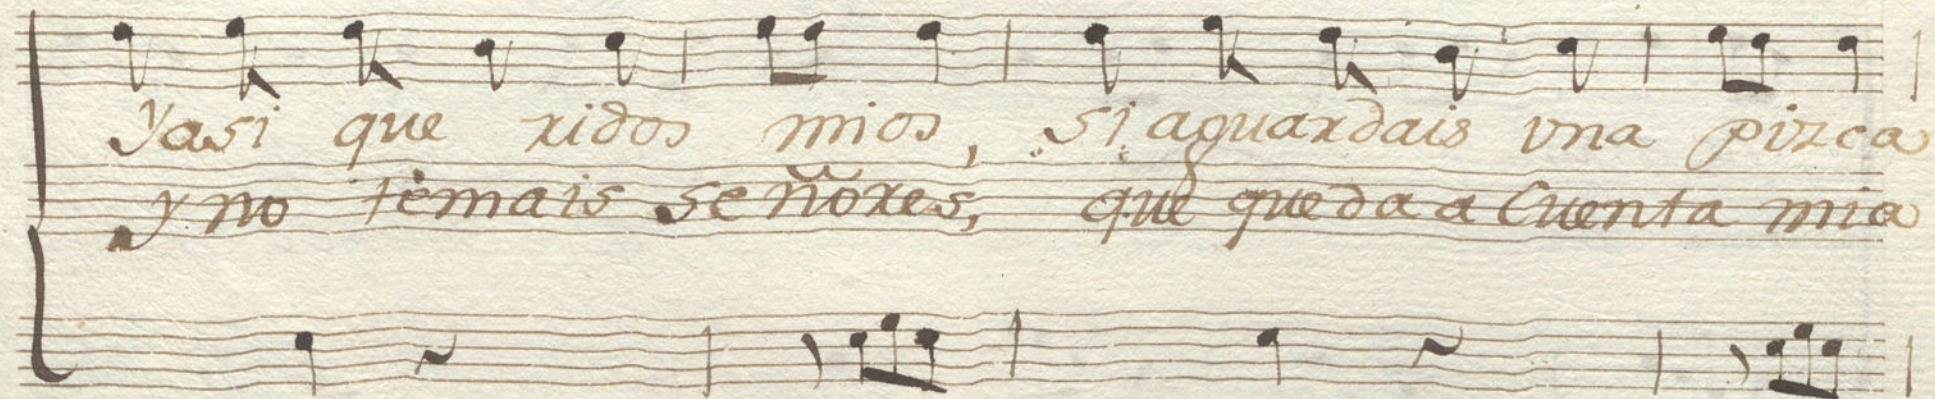 Yasi que ridos mios, si aguardais vna pizca
y no temais señores, que queda a Cuenta mia